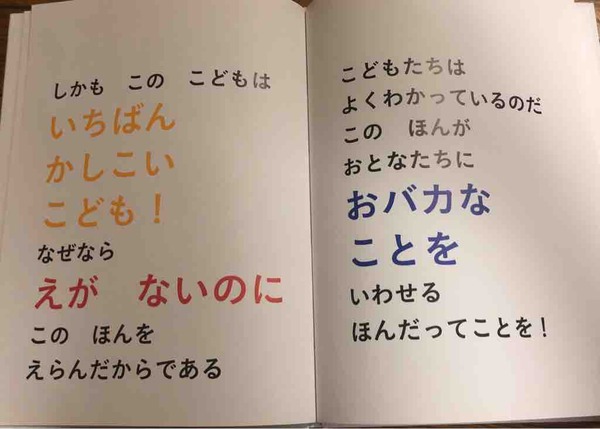 しかも　この　こどもは
いちばん
かしこい
こども！
なぜなら
えが　ないのに
この　ほんを
えらんだからである
こどもたちは
よくわかっているのだ
この　ほんが
おとなたちに
おバカな
ことを
いわせる
ほんだってことを！